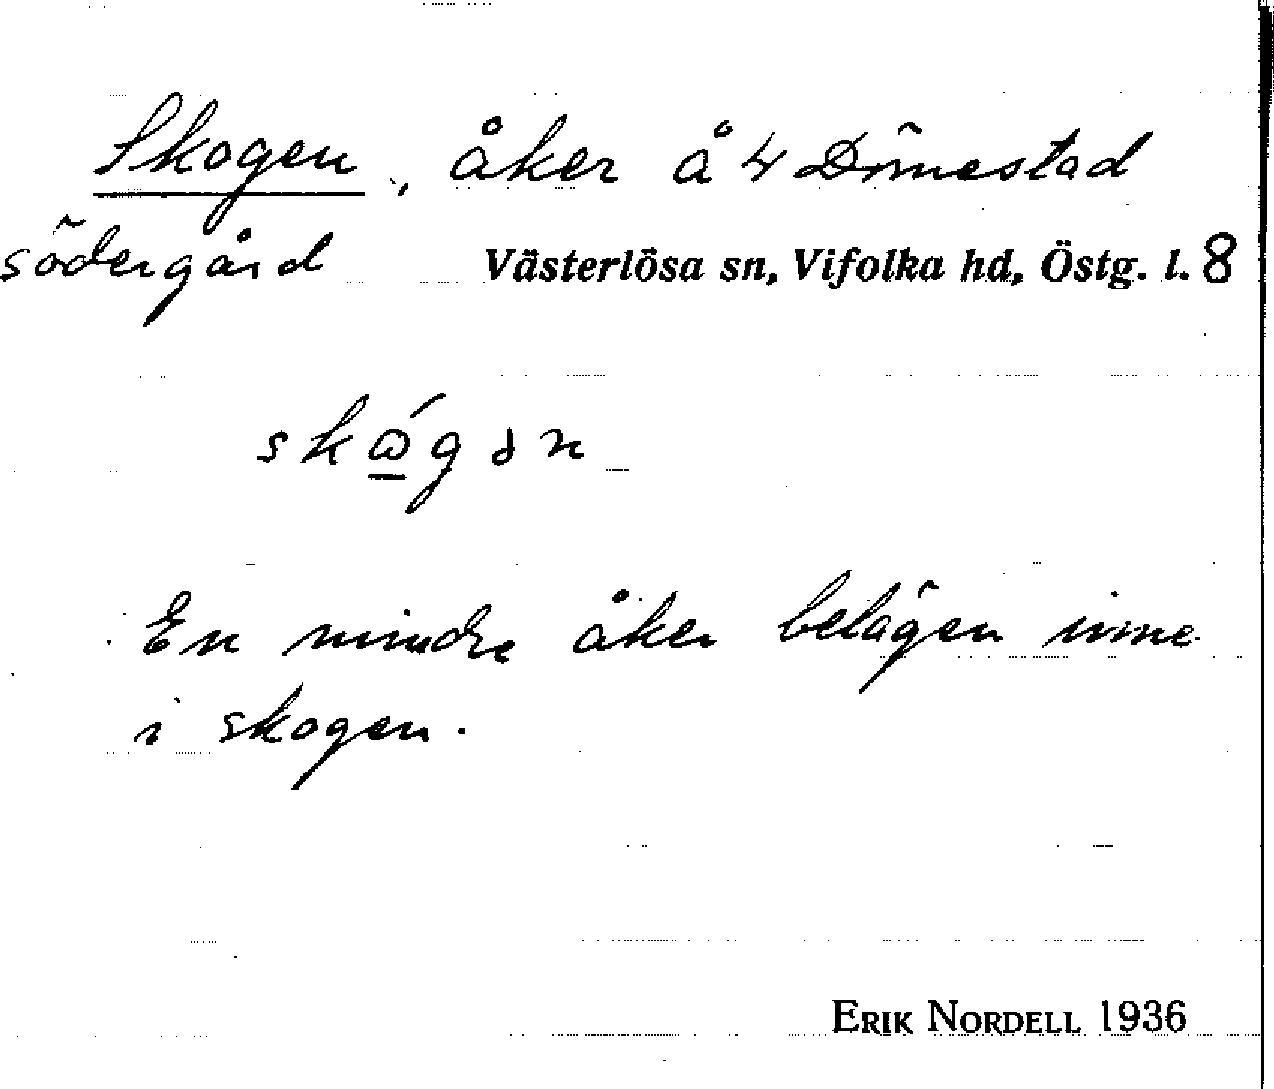 Skogen, åker å 4 Dömestad
södergård Västerlösa sn, Vifolka hd, Östg. l. 8
skɷ̲́gən
En mindre åker belägen inne
i skogen.
ERIK NORDELL 1936